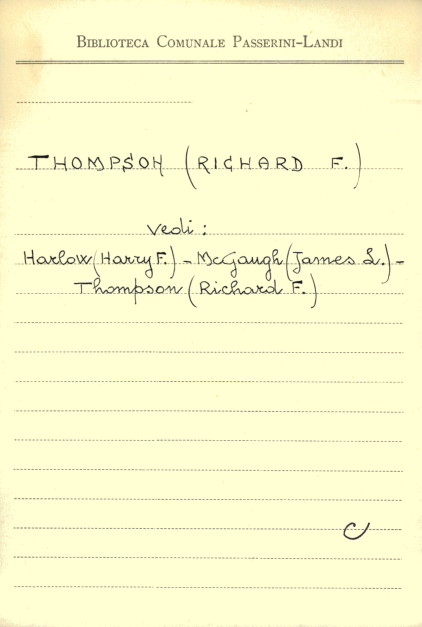 BIBLIOTECA COMUNALE PASSERINI-LANDI
THOMPSON (RICHARD F.)
Vedi:
Harlow (Harry F.) - McGaugh (James L.) -
Thompson (Richard F.)
C